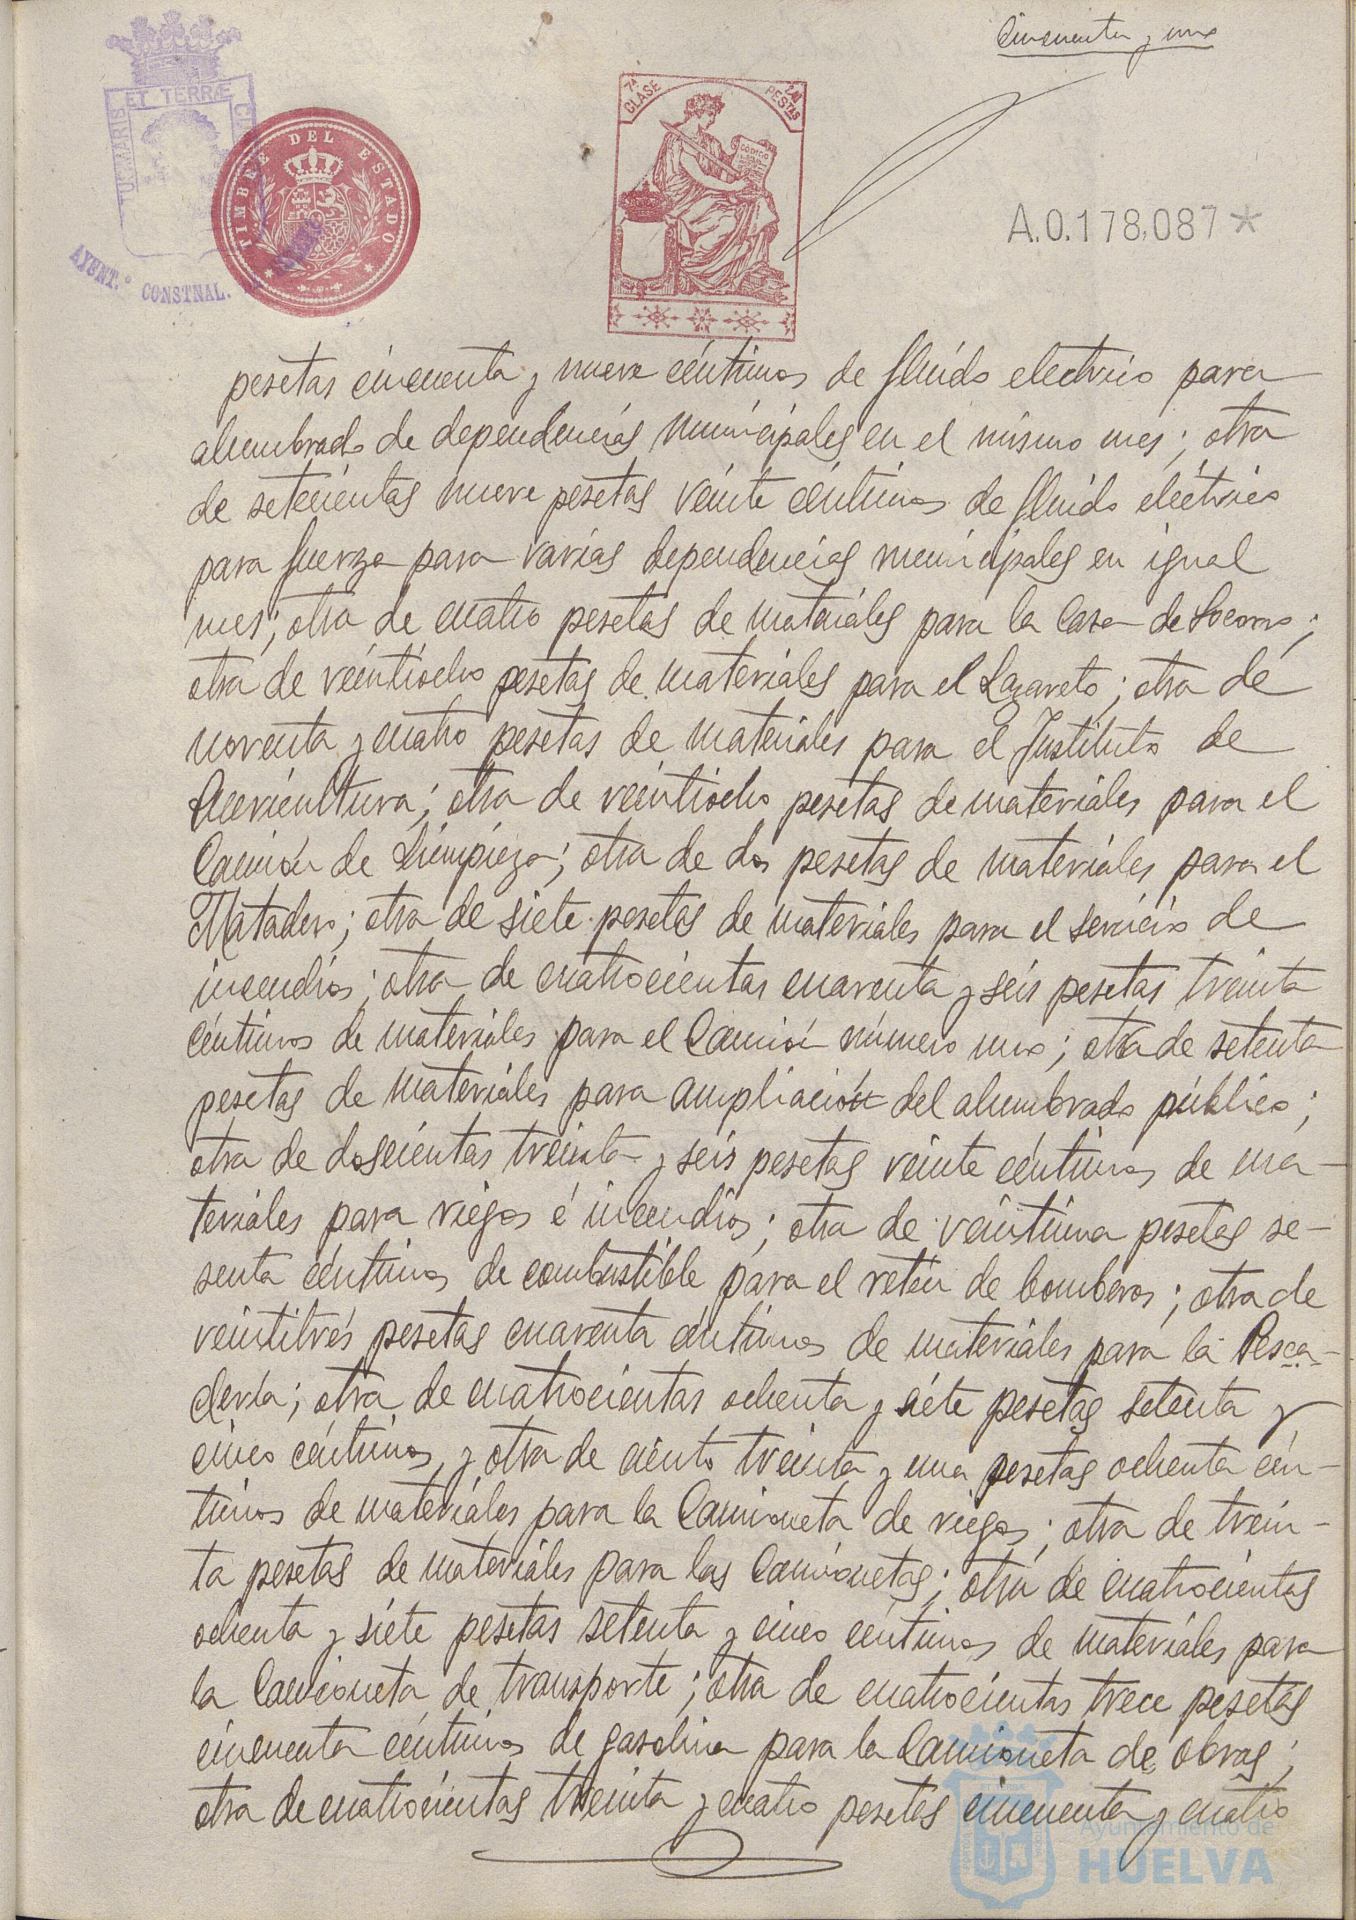 Cincuenta y uno
ET TERRÆ
US MARIS
AYUNT.º CONSTNAL.
TIMBRE DEL ESTADO
7ª CLASE
PESTAS
CODIGO
A.0.178,087*
pesetas cincuenta y nueve céntimos de fluido electrico para
alumbrado de dependencias municipales en el mismo mes; otra
de setecientas nueve pesetas veinte céntimos de fluido eléctrico
para fuerza para varias dependencias municipales en igual
mes; otra de cuatro pesetas de materiales para la Casa de Socorro;
otra de veintiocho pesetas de materiales para el Lazareto; otra de
noventa y cuatro pesetas de materiales para el Instituto de
Puericultura; otra de veintiocho pesetas de materiales para el
Camión de Limpieza; otra de dos pesetas de materiales para el
Matadero; otra de siete pesetas de materiales para el servicio de
incendios; otra de cuatrocientas cuarenta y seis pesetas treinta
céntimos de materiales para el Camión número uno; otra de setenta
pesetas de materiales para ampliación del alumbrado público;
otra de doscientas treinta y seis pesetas veinte céntimos de ma-
teriales para riegos é incendios; otra de veintiuna pesetas se-
senta céntimos de combustible para el retén de bomberos; otra de
veintitrés pesetas cuarenta céntimos de materiales para la Pesca-
dería; otra de cuatrocientas ochenta y siete pesetas setenta y
cinco céntimos y otra de ciento treinta y una pesetas ochenta cén-
timos de materiales para la Camioneta de riegos; otra de trein-
ta pesetas de materiales para las Camionetas; otra de cuatrocientas
ochenta y siete pesetas setenta y cinco céntimos de materiales para
la Camioneta de transporte; otra de cuatrocientas trece pesetas
cincuenta céntimos de gasolina para la Camioneta de obras;
otra de cuatrocientas treinta y cuatro pesetas cincuenta y cuatro
Ayuntamiento de
HUELVA